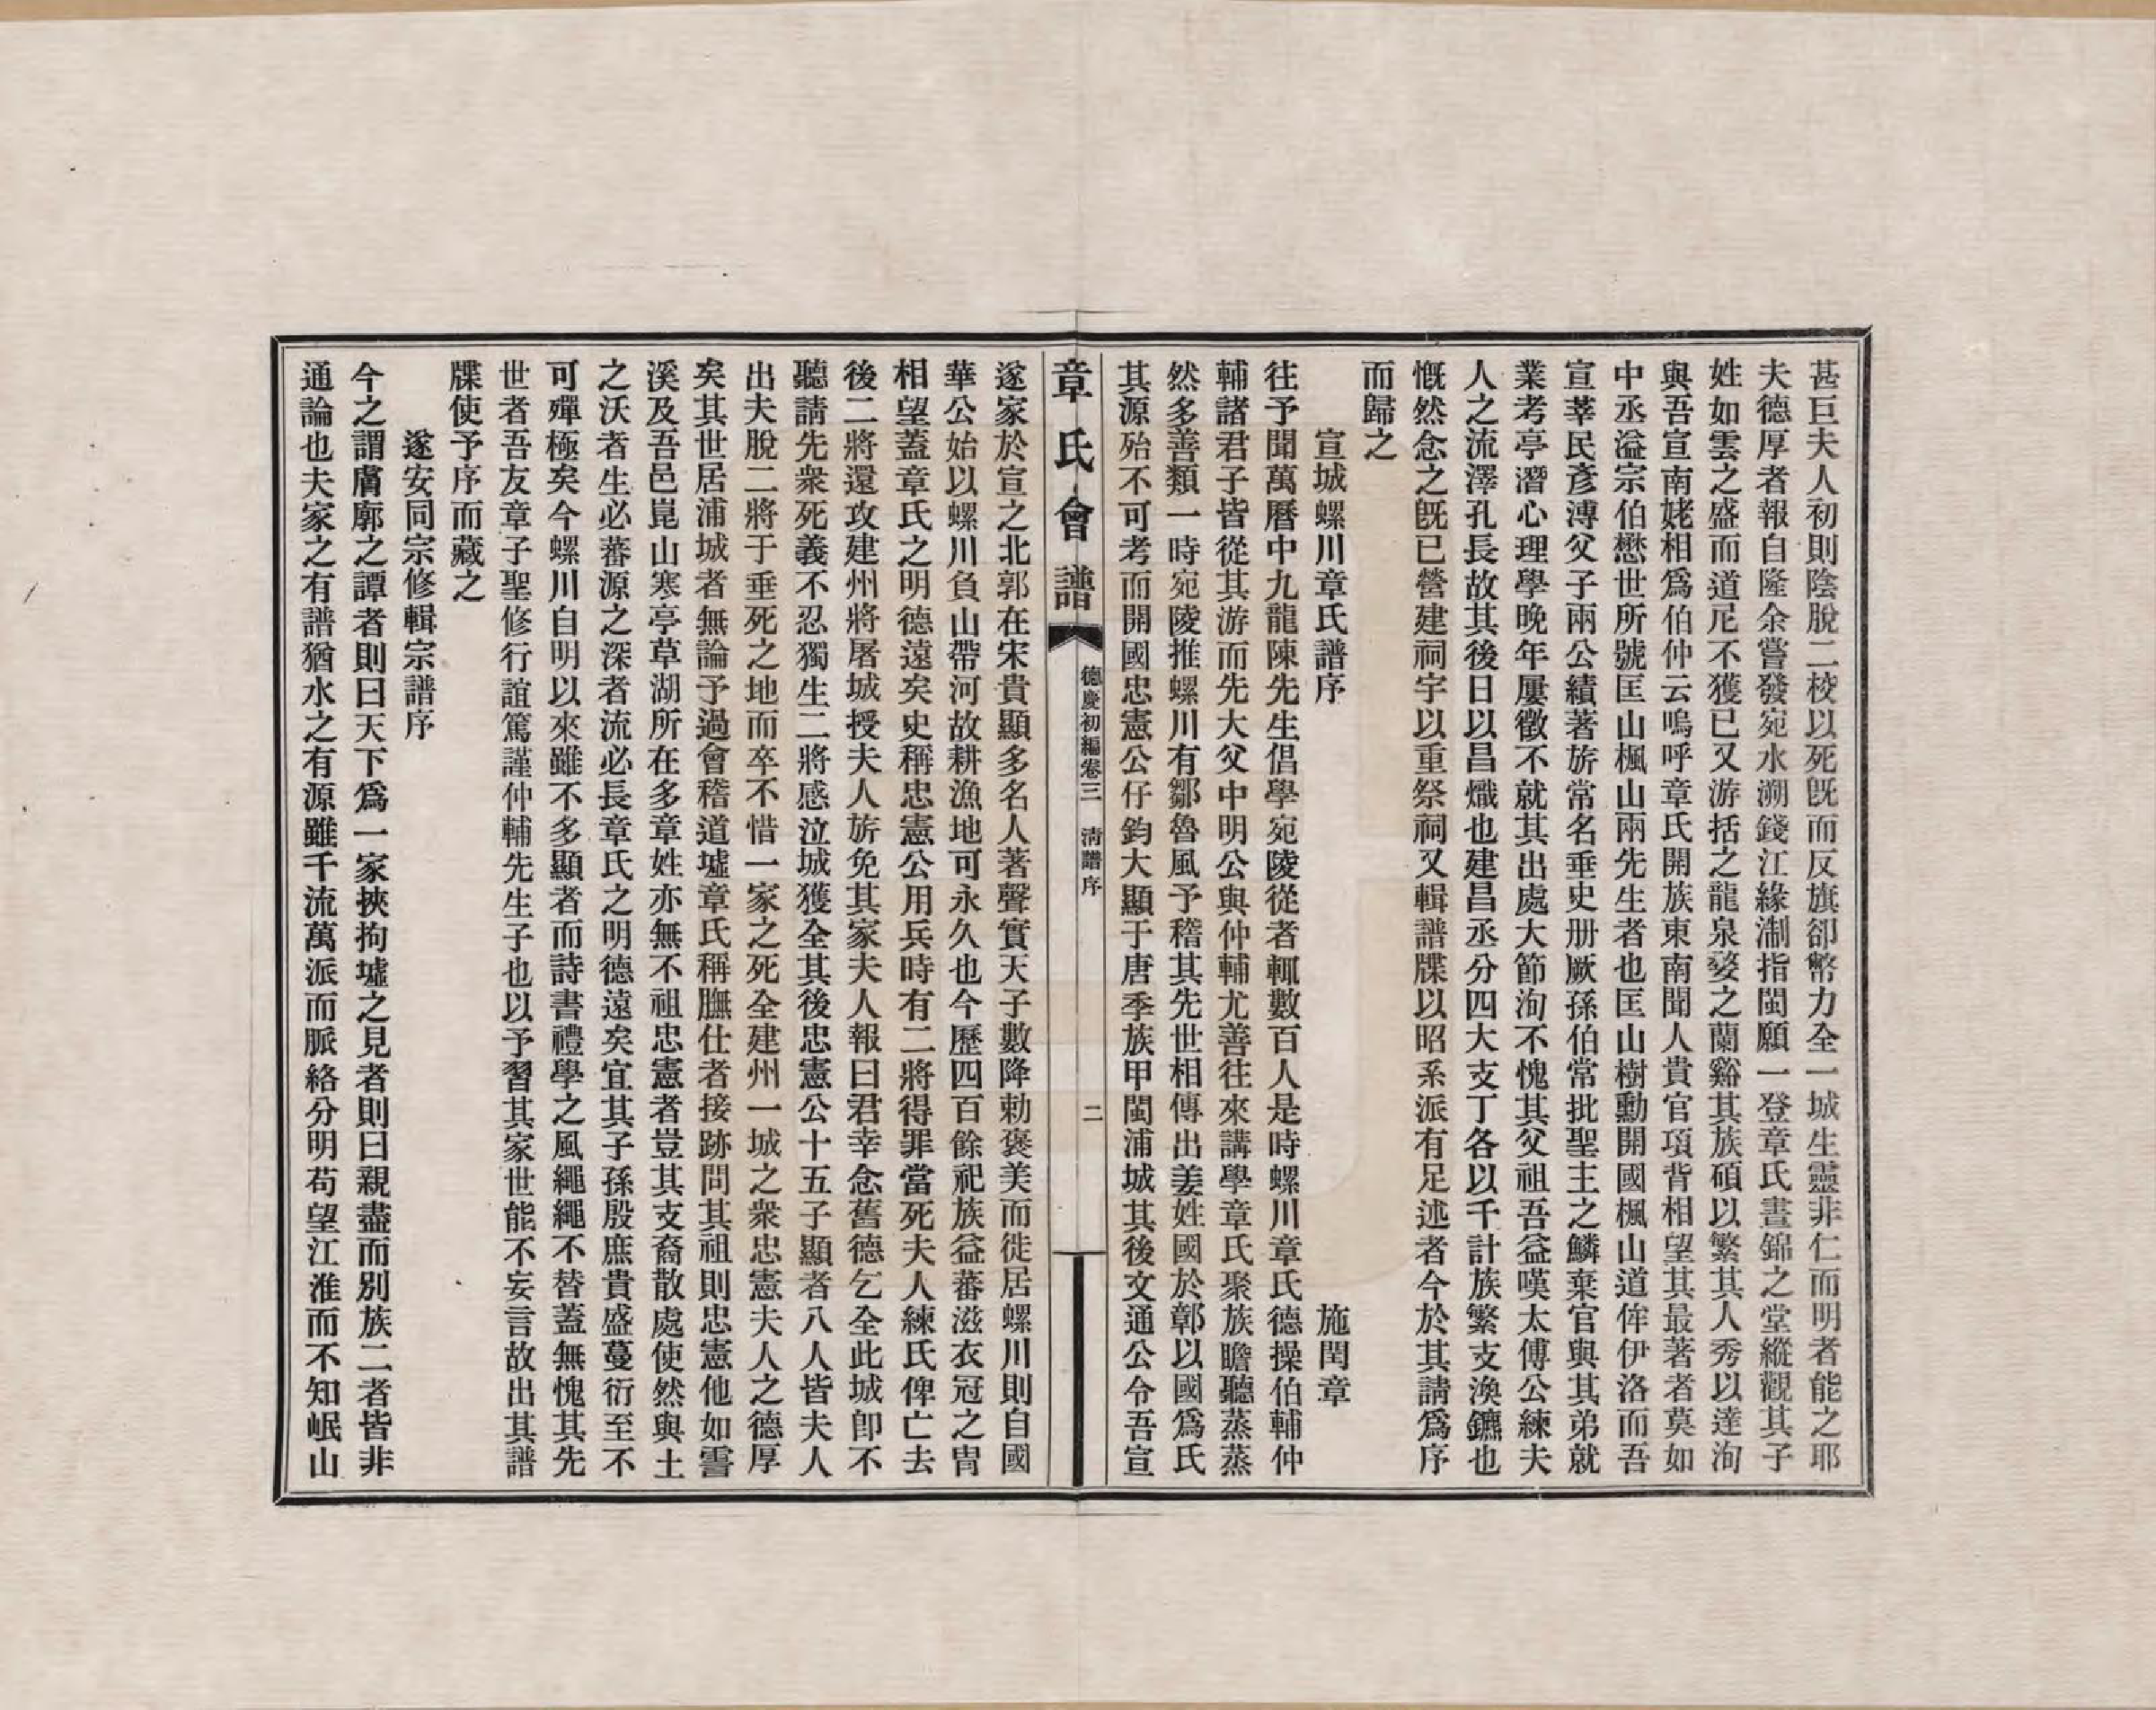 甚巨夫人初則陰脫二校以死旣而反旗卻幣力全一城生靈非仁而明者能之耶
夫德厚者報自隆余嘗發宛水溯錢江緣淛指閩願一登章氏晝錦之堂縱觀其子
姓如雲之盛而道尼不獲已又游括之龍泉婺之蘭谿其族碩以繁其人秀以達洵
與吾宣南姥相爲伯仲云嗚呼章氏開族東南聞人貴官項背相望其最著者莫如
中丞溢宗伯懋世所號匡山楓山兩先生者也匡山樹勳開國楓山道侔伊洛而吾
宣莘民彥溥父子兩公績著旂常名垂史册厥孫伯常批聖主之鱗棄官與其弟就
業考亭潛心理學晚年屢徵不就其出處大節洵不愧其父祖吾益嘆太傅公練夫
人之流澤孔長故其後日以昌熾也建昌丞分四大支丁各以千計族繁支渙鑣也
慨然念之旣已營建祠宇以重祭祠又輯譜牒以昭系派有足述者今於其請爲序
而歸之
宣城螺川章氏譜序 施閏章
往予聞萬曆中九龍陳先生倡學宛陵從者輒數百人是時螺川章氏德操伯輔仲
輔諸君子皆從其游而先大父中明公與仲輔尤善往來講學章氏聚族瞻聽蒸蒸
然多善類一時宛陵推螺川有鄒魯風予稽其先世相傳出姜姓國於鄣以國爲氏
其源殆不可考而開國忠憲公仔鈞大顯于唐季族甲閩浦城其後文通公令吾宣
章氏會譜 德慶初編卷三 清譜序 二
遂家於宣之北郭在宋貴顯多名人著聲實天子數降勅褒美而徙居螺川則自國
華公始以螺川負山帶河故耕漁地可永久也今歷四百餘祀族益蕃滋衣冠之胄
相望蓋章氏之明德遠矣史稱忠憲公用兵時有二將得罪當死夫人練氏俾亡去
後二將還攻建州將屠城授夫人旂免其家夫人報曰君幸念舊德乞全此城卽不
聽請先衆死義不忍獨生二將感泣城獲全其後忠憲公十五子顯者八人皆夫人
出夫脫二將于垂死之地而卒不惜一家之死全建州一城之衆忠憲夫人之德厚
矣其世居浦城者無論予過會稽道墟章氏稱膴仕者接跡問其祖則忠憲他如霅
溪及吾邑崑山寒亭草湖所在多章姓亦無不祖忠憲者豈其支裔散處使然與土
之沃者生必蕃源之深者流必長章氏之明德遠矣宜其子孫殷庶貴盛蔓衍至不
可殫極矣今螺川自明以來雖不多顯者而詩書禮學之風繩繩不替蓋無愧其先
世者吾友章子聖修行誼篤謹仲輔先生子也以予習其家世能不妄言故出其譜
牒使予序而藏之
遂安同宗修輯宗譜序
今之謂膚廓之譚者則曰天下爲一家挾拘墟之見者則曰親盡而別族二者皆非
通論也夫家之有譜猶水之有源雖千流萬派而脈絡分明苟望江淮而不知岷山